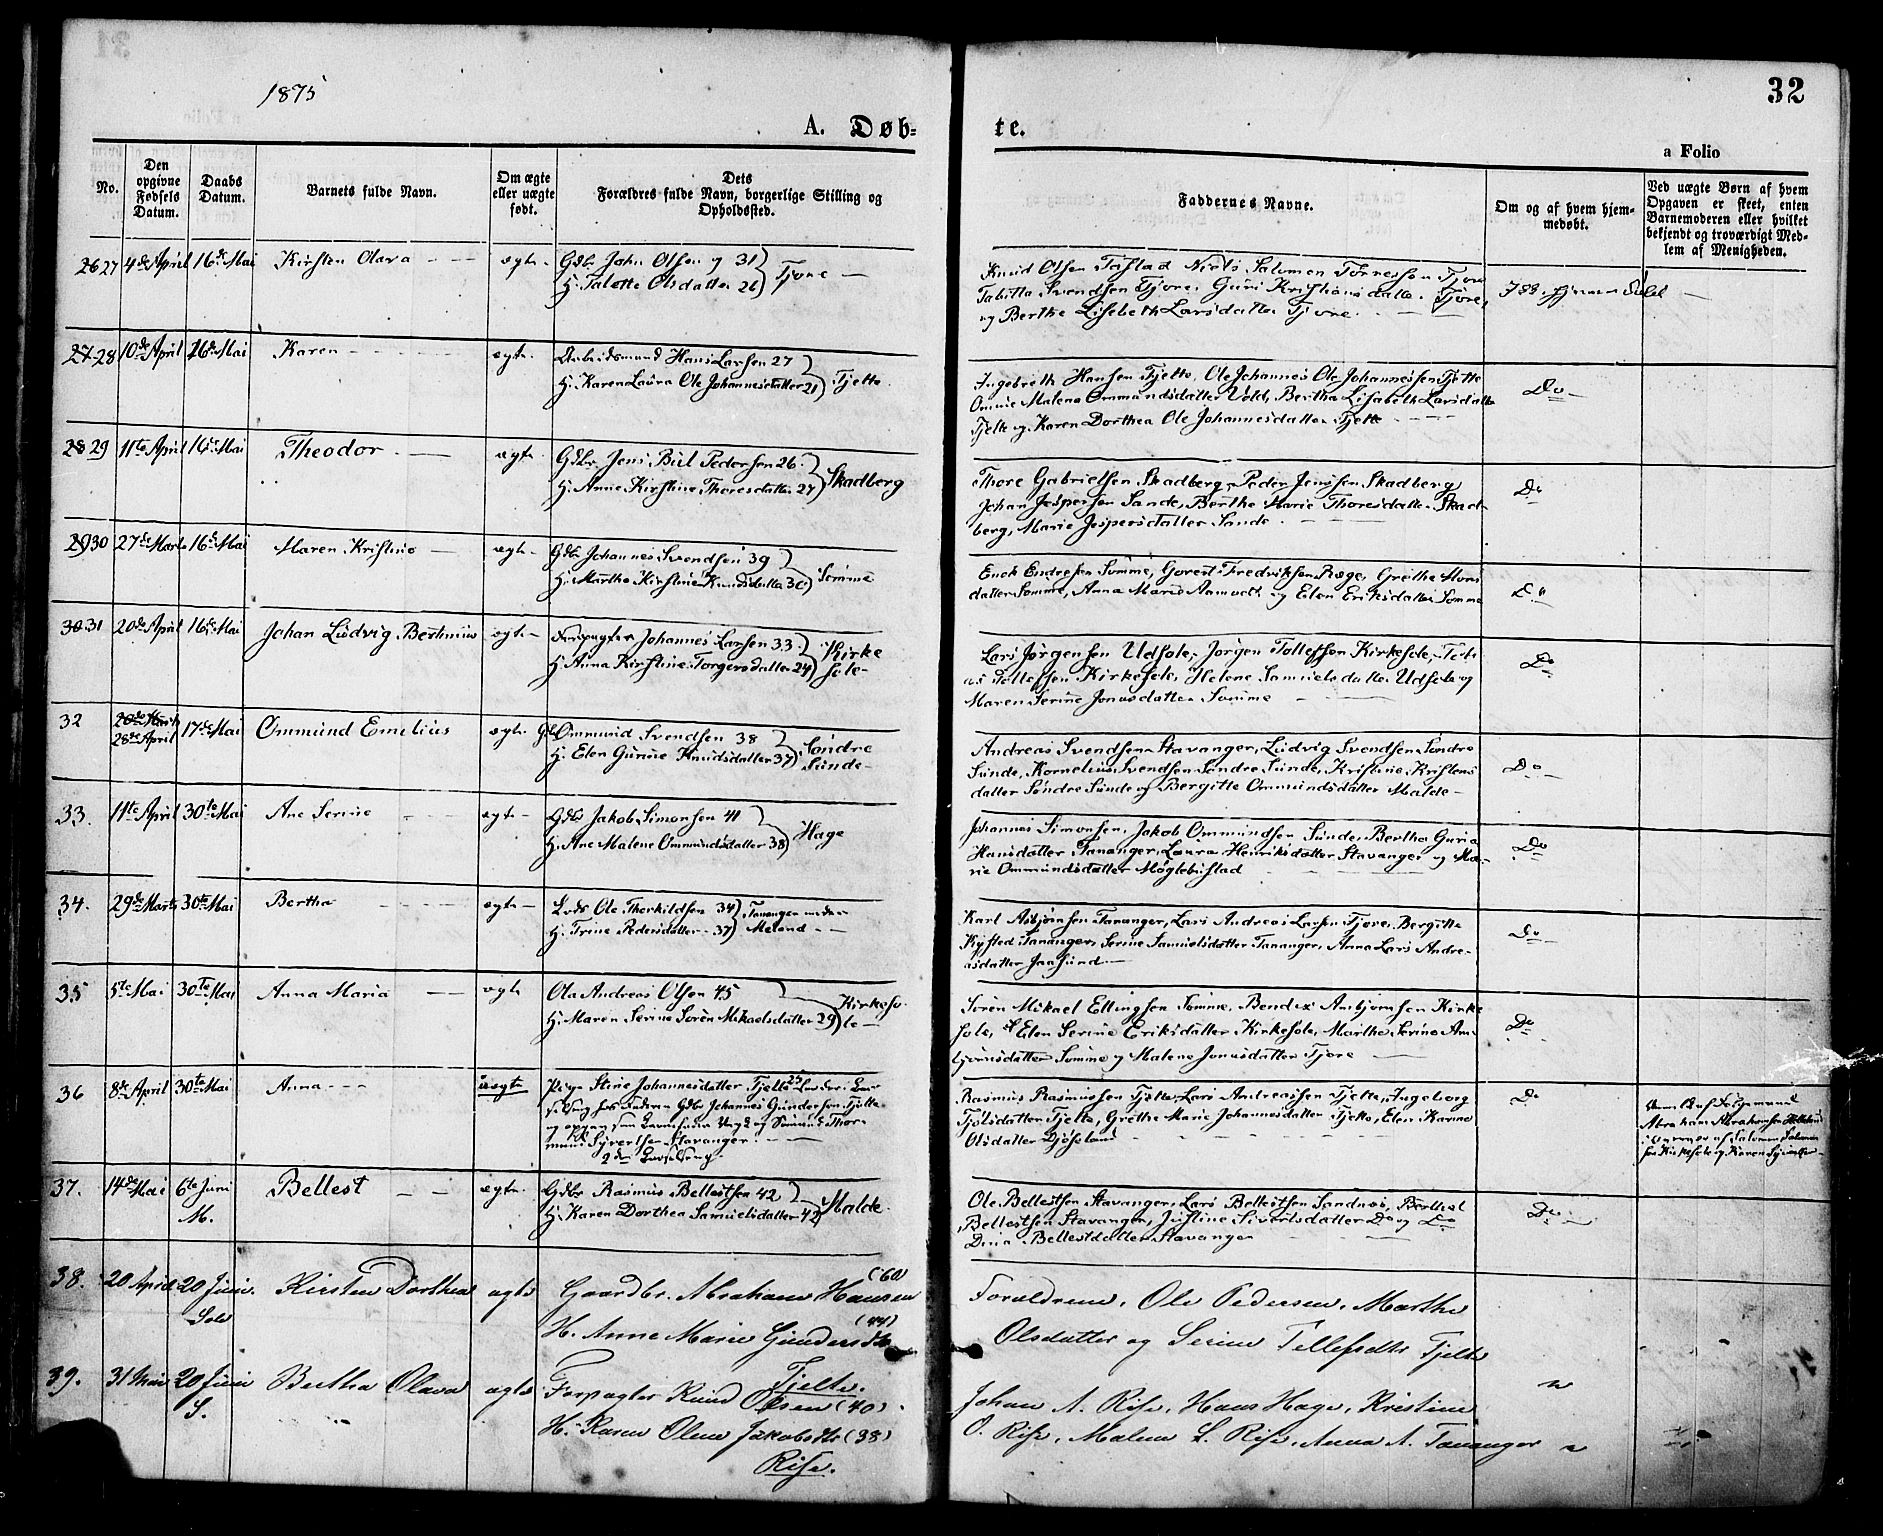 1875
32
A. Døb=
te.
a Folio
No.
Den opgivne Fødsels Datum.
Daabs Datum.
Barnets fulde Navn.
Om ægte eller uægte født.
Dets
Forældres fulde Navn, borgerlige Stilling og
Opholdssted.
Faddernes Navne.
Om og af hvem hjem-
medøbt.
Ved uægte Børn af hvem
Opgaven er skeet, enten
Barnemoderen eller hvilket
bekjendt og troværdigt Med-
lem af Menigheden.
26 27 4de April 16de Mai Kirsten Olava egte Gdbr John Olsen 31
H. Talette Olsdatter 26 Tjore
Knud Olsen Niels Salomon Tørresen Tjore
Tabitta Svendsen Tjore, Guri Kristiansdatter Tjore,
og Berthe Lisebeth Larsdatter Tjore.
27 28 10de April 16de Mai Karen egte Arbeidsmand Hans Larsen 27
H. Karen Laura Ole Johannesdatter 21 Tjelte
Ingebreth Hansen Tjelte, Ole Johannes Ole Johannessen Tjelte
Malene Ommundsdatter Vold, Bertha Lisabeth Larsdatter
Tjelte og Karen Dorthea Ole Johannesdatter Tjelte
Do
28 29 11te April 16de Mai Theodor egte Gdbr Jens Bul Pedersen 26
H. Anne Kirstine Thoresdatter 27 Skadberg
Thore Gabrielsen Skadberg, Peder Jensen Skadberg
Johan Jespersen Sande, Berthe Marie Thoresdatter Skad-
berg, Marie Jespersdatter Sande.
Do
29 30 27de Marts 16de Mai Maren Kristine egte Gdbr Johannes Svendsen 39
H. Marthe Kirstine Knudsdatter 30 Sømme
Endre Sømme, Govert Fredriksen Ræge, Grethe Mons
datter Sømme, Anna Maria og Elen Eriksdatter Sømme
Do
30 31 20de April 16de Mai Johan Ludvig Bertinius egte Forpagter Johannes Larsen 33
H. Anna Kirstine Torgersdatter 24 Kirke
sole
Lars Jørgensen Udsole, Jørgen Tollefsen Kirkesole, Tob
ias Tollefsen Kirkesole, Helene Samuelsdatter Udsole og
Maren Serine Jonasdatter Sømme
Do
32 28de April 17de Mai Ommund Emelius egte Gdb Ommund Svendsen 38
H. Elen Gurine Knudsdatter 37 Søndre
Sunde
Andreas Svendsen Stavanger, Ludvig Svendsen Søndre
Sunde, Kornelius Svendsen Søndre Sunde, Kristine Kristens
datter Søndre Sunde og Bergitte Ommundsdatter Malde
Do
33. 11te April 30te Mai Ane Serine egte Gdbr Jakob Simonsen 41
H. Ane Malene Ommundsdatter 38 Hage
Johannes Simonsen, Jakob Ommundsen Sunde, Bertha Guria
Hansdatter Tananger, Laura Henriksdatter Stavanger og Ma-
rie Ommundsdatter Møglebustad
Do
34. 29de Marts 30te Mai Bertha egte Lods Ole Thorkildsen 34
H. Trine Pedersdatter 37 Tananger
Karl Asbjørnsen Tananger, Lars Andreas Larsen Tjore, Bergitte
Tananger, Serine Samuelsdatter Tananger, Anna Lars Andre-
asdatter Jaasund
Do
35 5te Mai 30te Mai Anna Maria egte Ola Andreas Olsen 45
H. Maren Serine Søren Mikaelsdatter 29 Kirkeso
le
Søren Mikael Ellingsen Sømme, Bendix Anbjørnsen Kirke
sole, Elen Serine Eriksdatter Kirkesole, Marthe Serine An
bjørnsdatter Sømme og Malene Jonasdatter Tjore
Do
36 8de April 30te Mai Anna uegte Pige Stine Johannesdatter Tjelte 25
hos Faderen Gdbr Johannes Gundersen Tjelte
og opgav som Barnefader Ungk og Sømand Thor
mund Syvertsen Stavanger
2den
Rasmus Rasmussen Tjelte, Lars Andreassen Tjelte, Ingeborg
datter Tjelte, Grethe Marie Johannesdatter Tjelte, Elen Karine
Olsdatter
Do
Abraham Abrahamsen
af Salomon Salomon
sen Kirkesole og Karen
37. 14de Mai 6te Juni
M. Bellest egte Gdbr Rasmus Bellestsen 42
H. Karen Dorthea Samuelsdatter 42 Malde
Ole Bellestsen Stavanger, Lars Bellestsen Sandnæs, Berthel
Bellestsen Stavanger, Justine Sivertsdatter Do og Do
Dina Bellestdatter Stavanger
Do
38. 20 April 20 Juni
Sole Kirsten Dorthea egte Gaardbr. Abraham Hansen (60)
H. Anne Marie Gundersdtr (44)
Tjelte.
Forældrene, Ole Pedersen, Marthe
Olsdatter og Serine Tellefsdtr Tjelte
39. 31 Mai 20 Juni
S. Bertha Olava egte Forpagter Knud Olsen (40)
H. Karen Olene Jakobsdtr (38)
Risе.
Johan A. Rise, Hans Hage, Kristine
O. Rise, Malene L. Rise, Anna A. Tananger